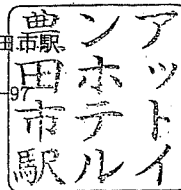 アットイ
ンホテル
豊田市駅